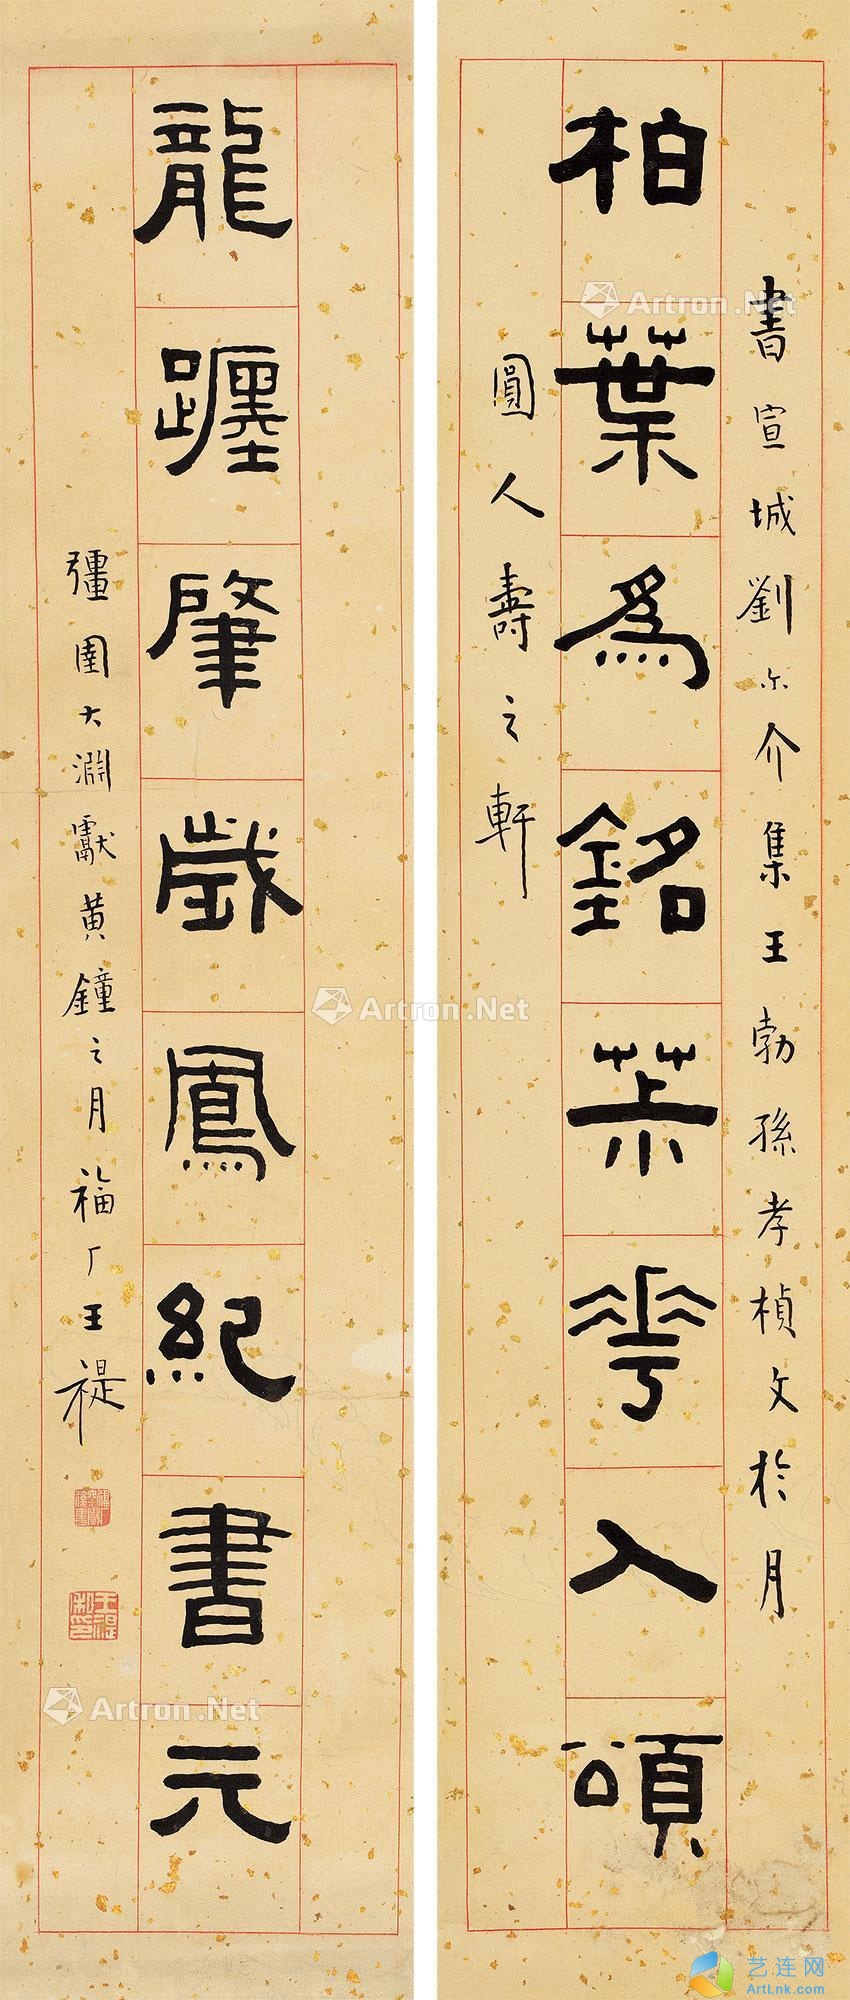 書宣城劉尒介集王勃孫孝楨文於月
柏葉為銘茮華入頌
圓人壽之軒
龍躔肇歲鳳紀書元
彊圉大淵獻黃鐘之月福厂王禔
王禔私印
Artron.Net
Artron.Net
Artron.Net
艺连网
ArtLnk.com